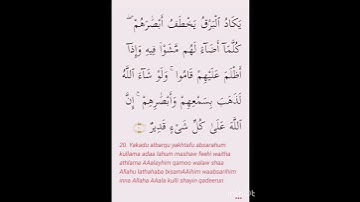 يَكَادُ الْبَرْقُ يَخْطَفُ أَبْصَٰرَهُمْ ۖ
كُلَّمَآ أَضَآءَ لَهُم مَّشَوْا۟ فِيهِ وَإِذَآ
أَظْلَمَ عَلَيْهِمْ قَامُوا۟ ۚ وَلَوْ شَآءَ اللَّهُ
لَذَهَبَ بِسَمْعِهِمْ وَأَبْصَٰرِهِمْ ۚ إِنَّ
اللَّهَ عَلَىٰ كُلِّ شَىْءٍ قَدِيرٌ
20. Yakadu albarqu yakhtafu absarahum
kullama adaa lahum mashaw feehi waitha
athlama AAalayhim qamoo walaw shaa
Allahu lathahaba bisamAAihim waabsarihim
inna Allaha AAala kulli shayin qadeerun